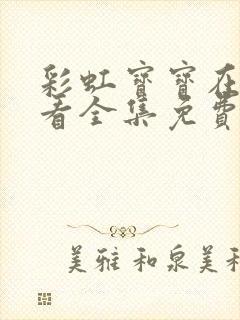 彩虹寶寶在
看全集免費
美雅和泉美和